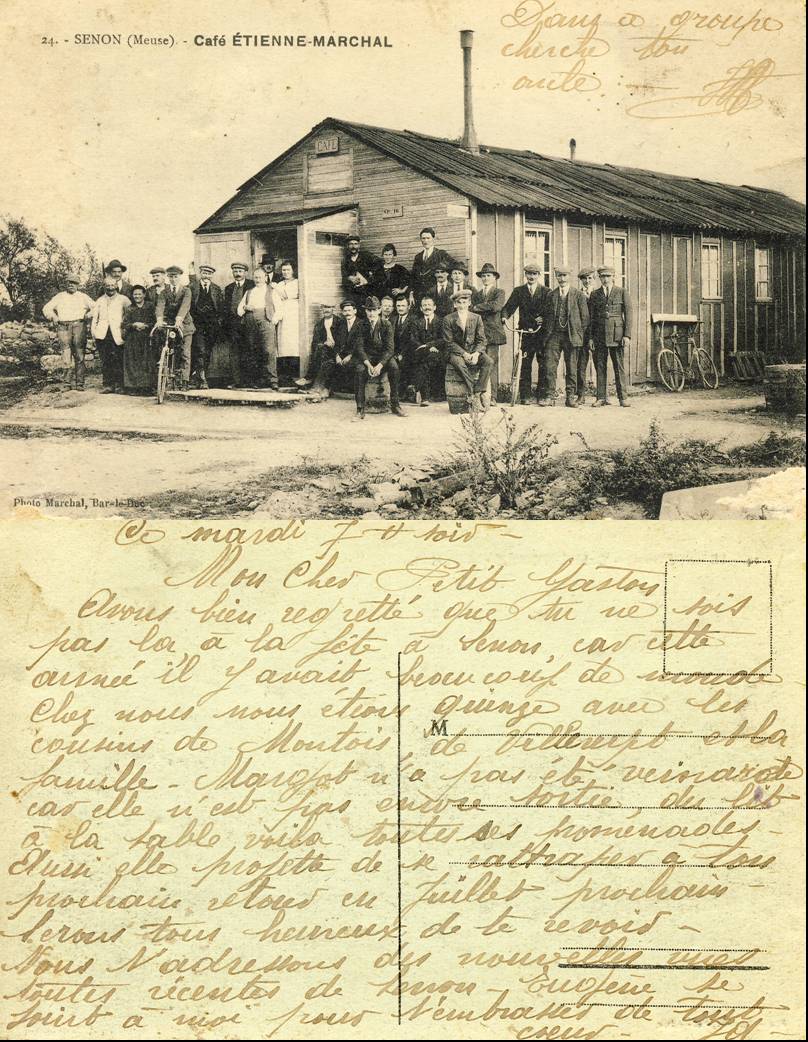 24. - SENON (Meuse) - Café ÉTIENNE-MARCHAL
Dans ce groupe
cherche ton
oncle :
CAFÉ
Photo Marchal, Bar-le-Duc
Ce mardi 7 soir -
Mon Cher Petit Gaston
Avons bien regretté que tu ne sois
pas là, à la fête à Senon, car cette
année il y avait beaucoup de monde
Chez nous nous étions quinze avec les
cousins de Montois, de Villerupt et la
famille - Margot n'a pas été
car elle n'est pas encore sortie, du lit
à la table voilà toutes ses promenades -
Aussi elle projette de se rattraper à ton
prochain retour en Juillet prochain -
Serons tous heureux de te revoir -
Nous t'adressons des nouvelles vues
toutes récentes de Senon - Eugène se
joint à moi pour t'embrasser de tout
coeur -
M